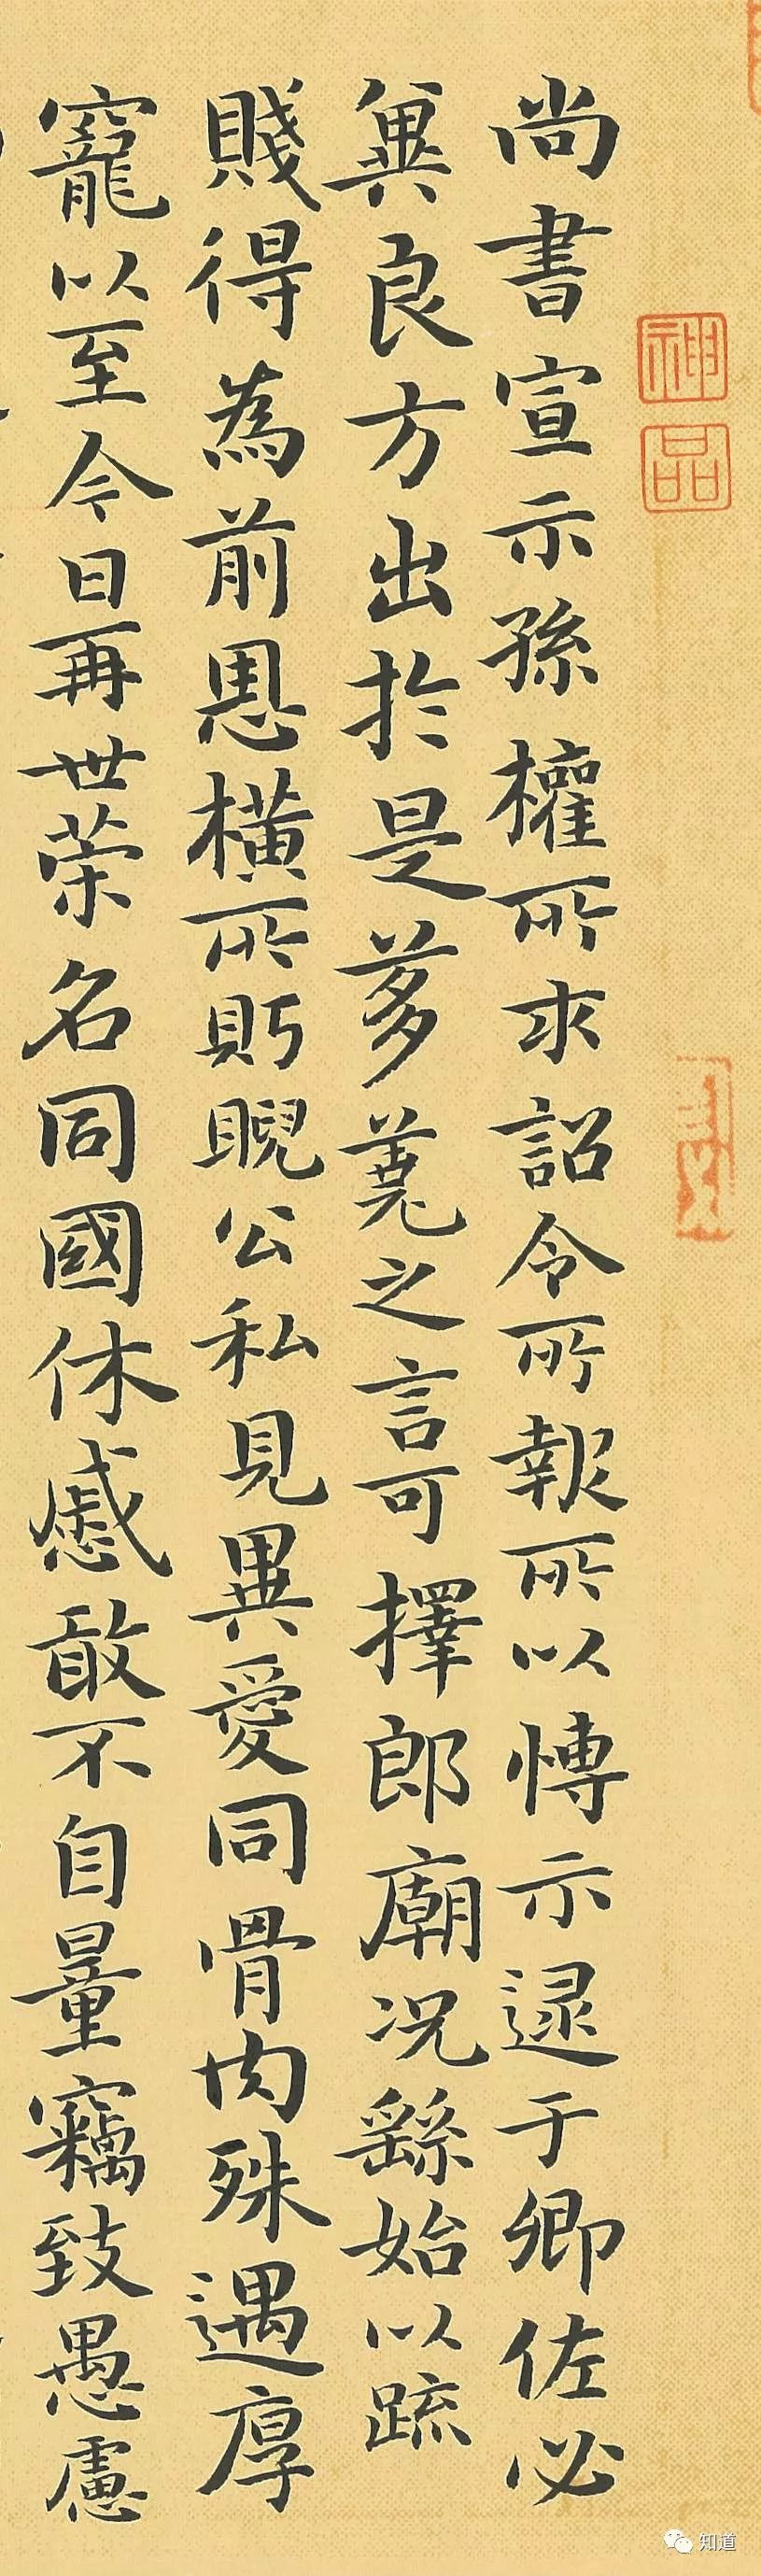 尚書宣示孫權所求詔令所報所以博示逮于卿佐必
兾良方出於是蒭蕘之言可擇郎廟况繇始以疏
賤得為前恩橫所眄睨公私見異愛同骨肉殊遇厚
寵以至今日再世荣名同國休慼敢不自量竊致愚慮
神品
知道